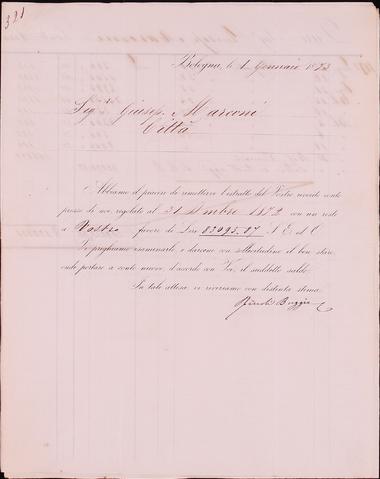 321
Bologna, li 1 Gennaio 1873
Sigr Giusep. Marconi
Città
Abbiamo il piacere di rimettervi l'estratto del Vostro accorde conto
presso di noi, regolato al 31 Xmbre 1872 con un resto
a Vostro favore di Lire 83095.87 S. E. ed O.
Vi preghiamo esaminarlo e darcene con sollecitudine il ben stare,
onde portare a conto nuovo, d'accordo con Voi, il suddetto saldo.
In tale attesa, vi riveriamo con distinta stima